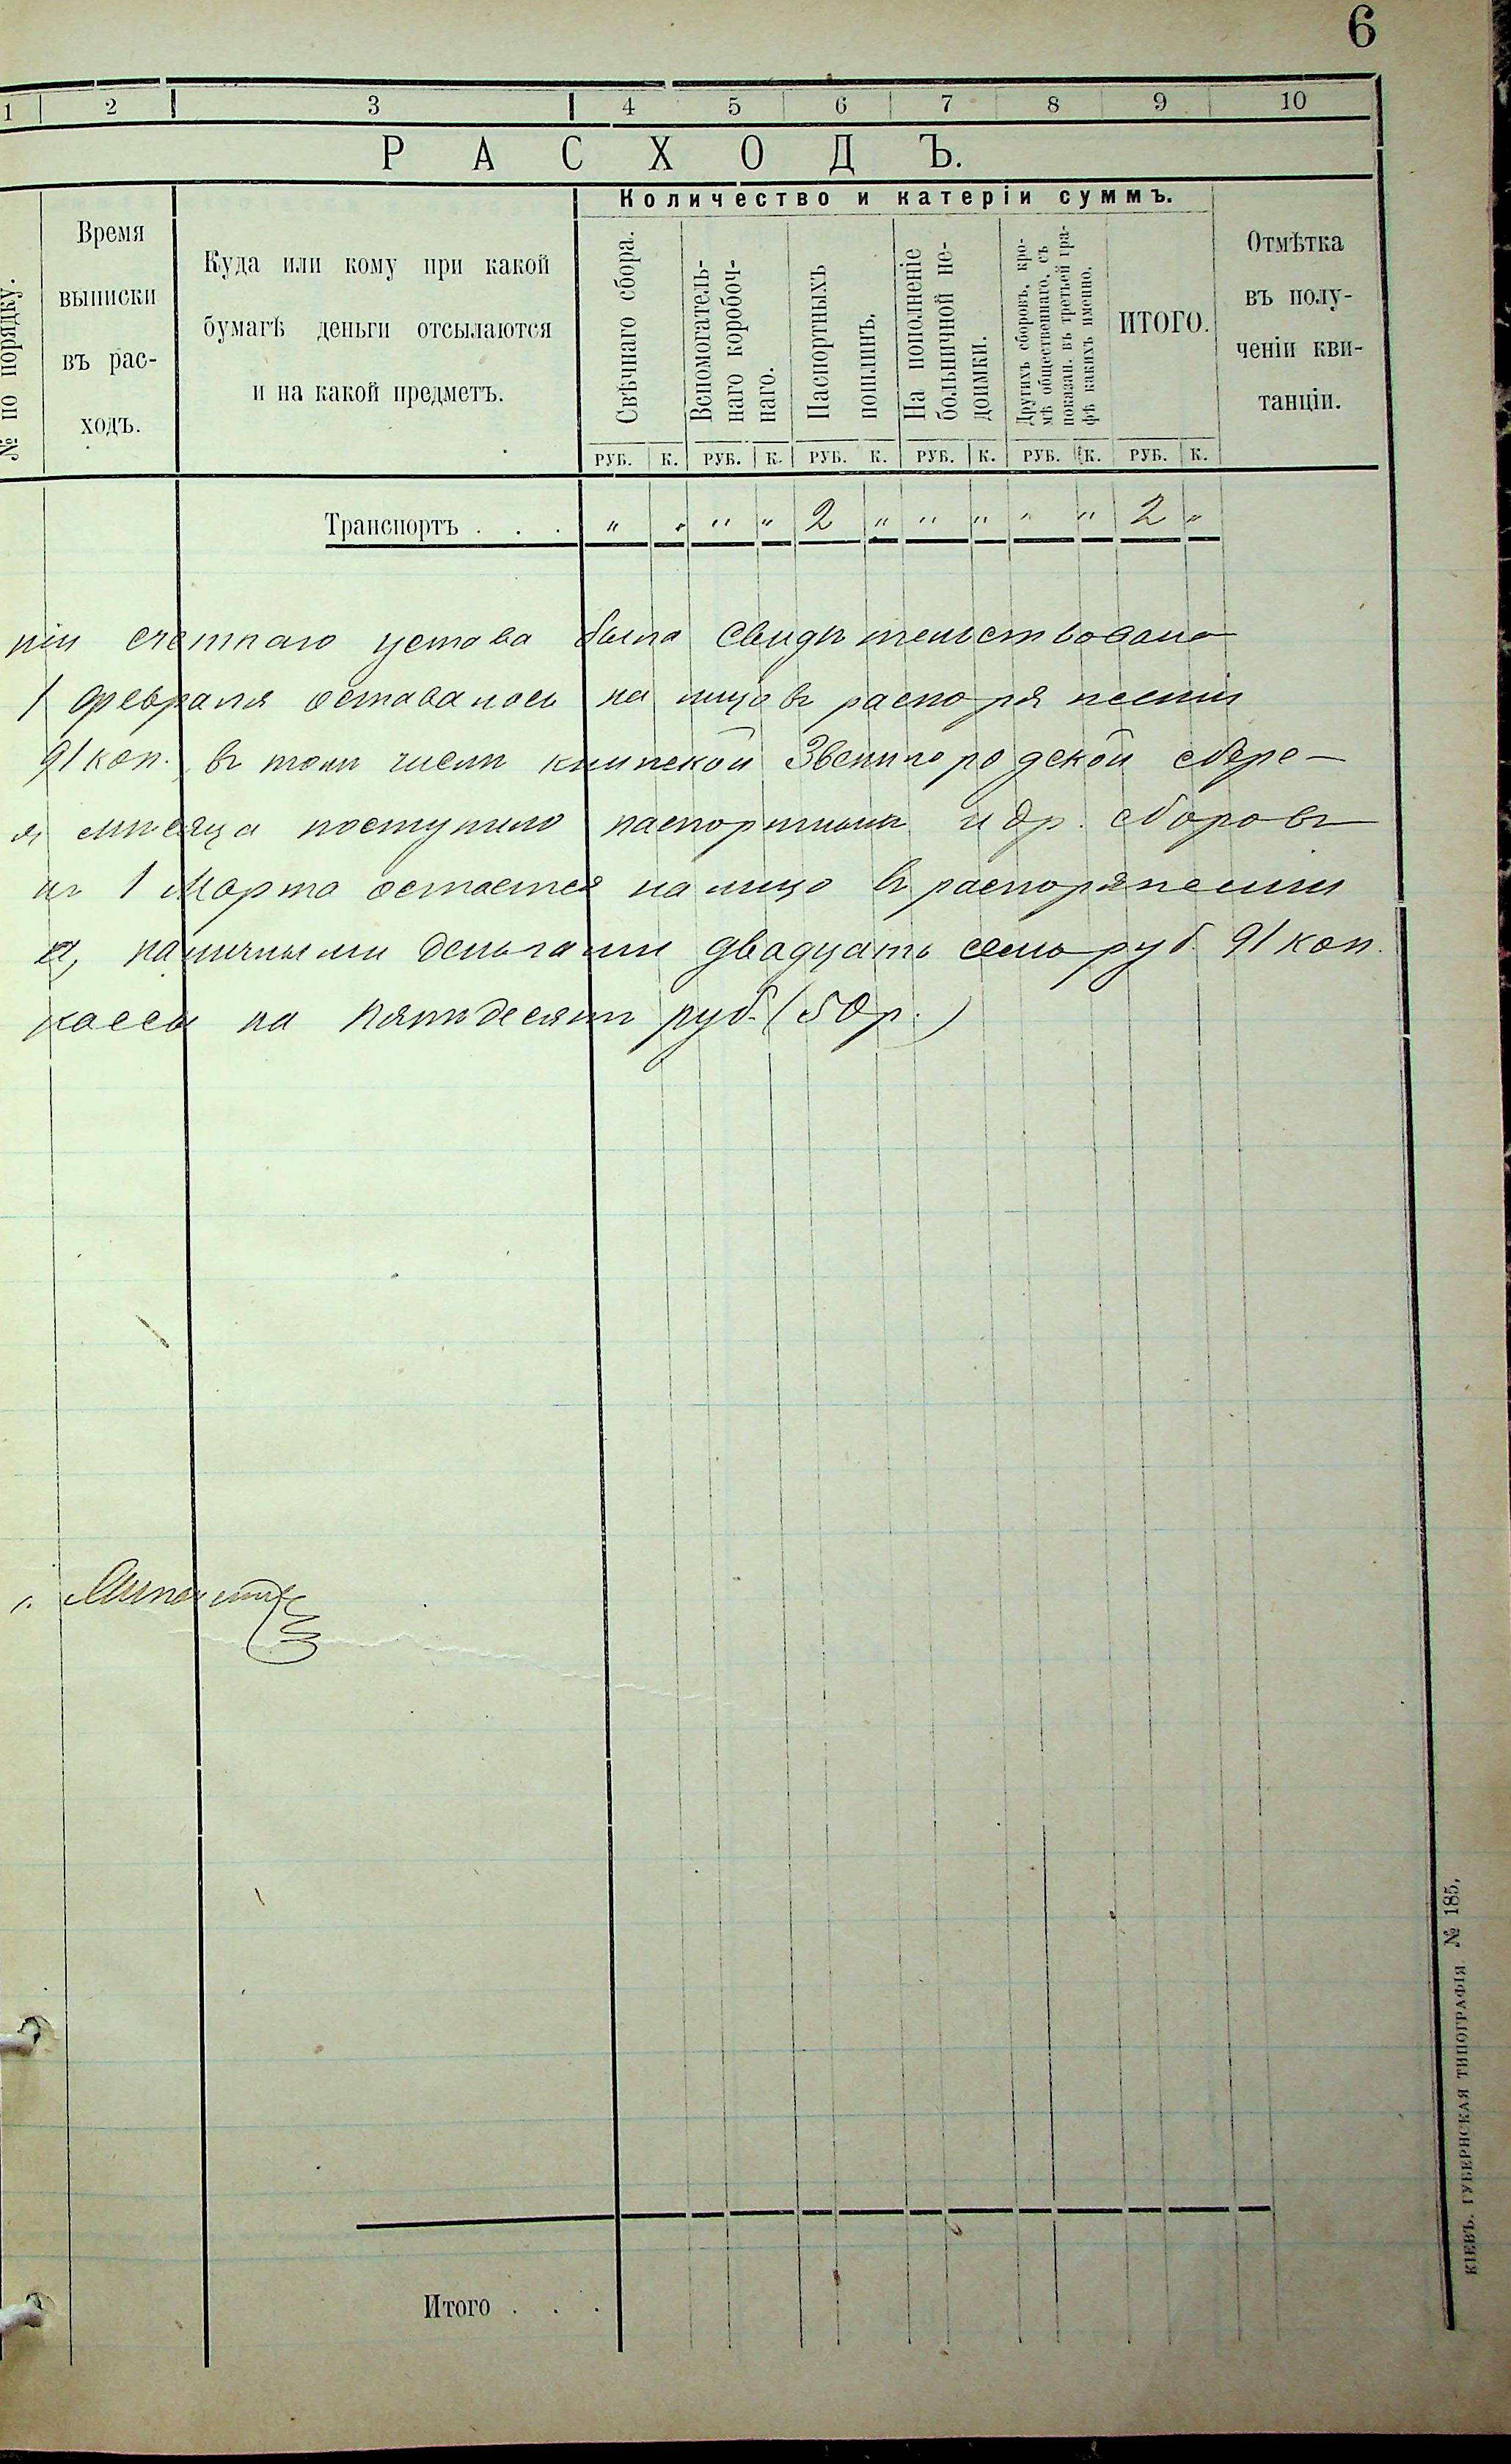 6
1 2 3 4 5 6 7 8 9 10
РАСХОДЪ.
№ по порядку.
Время
выписки
въ рас-
ходъ.
Куда или кому при какой
бумагѣ деньги отсылаются
и на какой предметъ.
Количество и катеріи суммъ.
Свѣчнаго сбора.
Вспомогатель-
наго коробоч-
наго.
Паспортныхъ
пошлинъ.
На пополненіе
больничной не-
доимки.
Другихъ сборовъ, кро-
мѣ общественнаго, съ
показан. въ третьей гра-
фѣ какихъ именно.
ИТОГО.
Отмѣтка
въ полу-
ченіи кви-
танціи.
РУБ. К. РУБ. К. РУБ. К. РУБ. К. РУБ. К. РУБ. К.
Транспортъ . . . " " " " 2 " " " " " 2 "
ніи счетнаго устава была свидѣтельствована
1 Февраля оставалось на лицо въ распоряженіи
91 коп. въ томъ числѣ книжкой Звенигородской сбере-
я мѣсяца поступило паспортныхъ и др. сборовъ
къ 1 Марта остается на лицо въ распоряженіи
а, наличными деньгами двадцать семь руб. 91 коп.
кассы на пятьдесятъ руб. (50 р.)
Итого . . .
КІЕВЪ. ГУБЕРНСКАЯ ТИПОГРАФІЯ № 185,